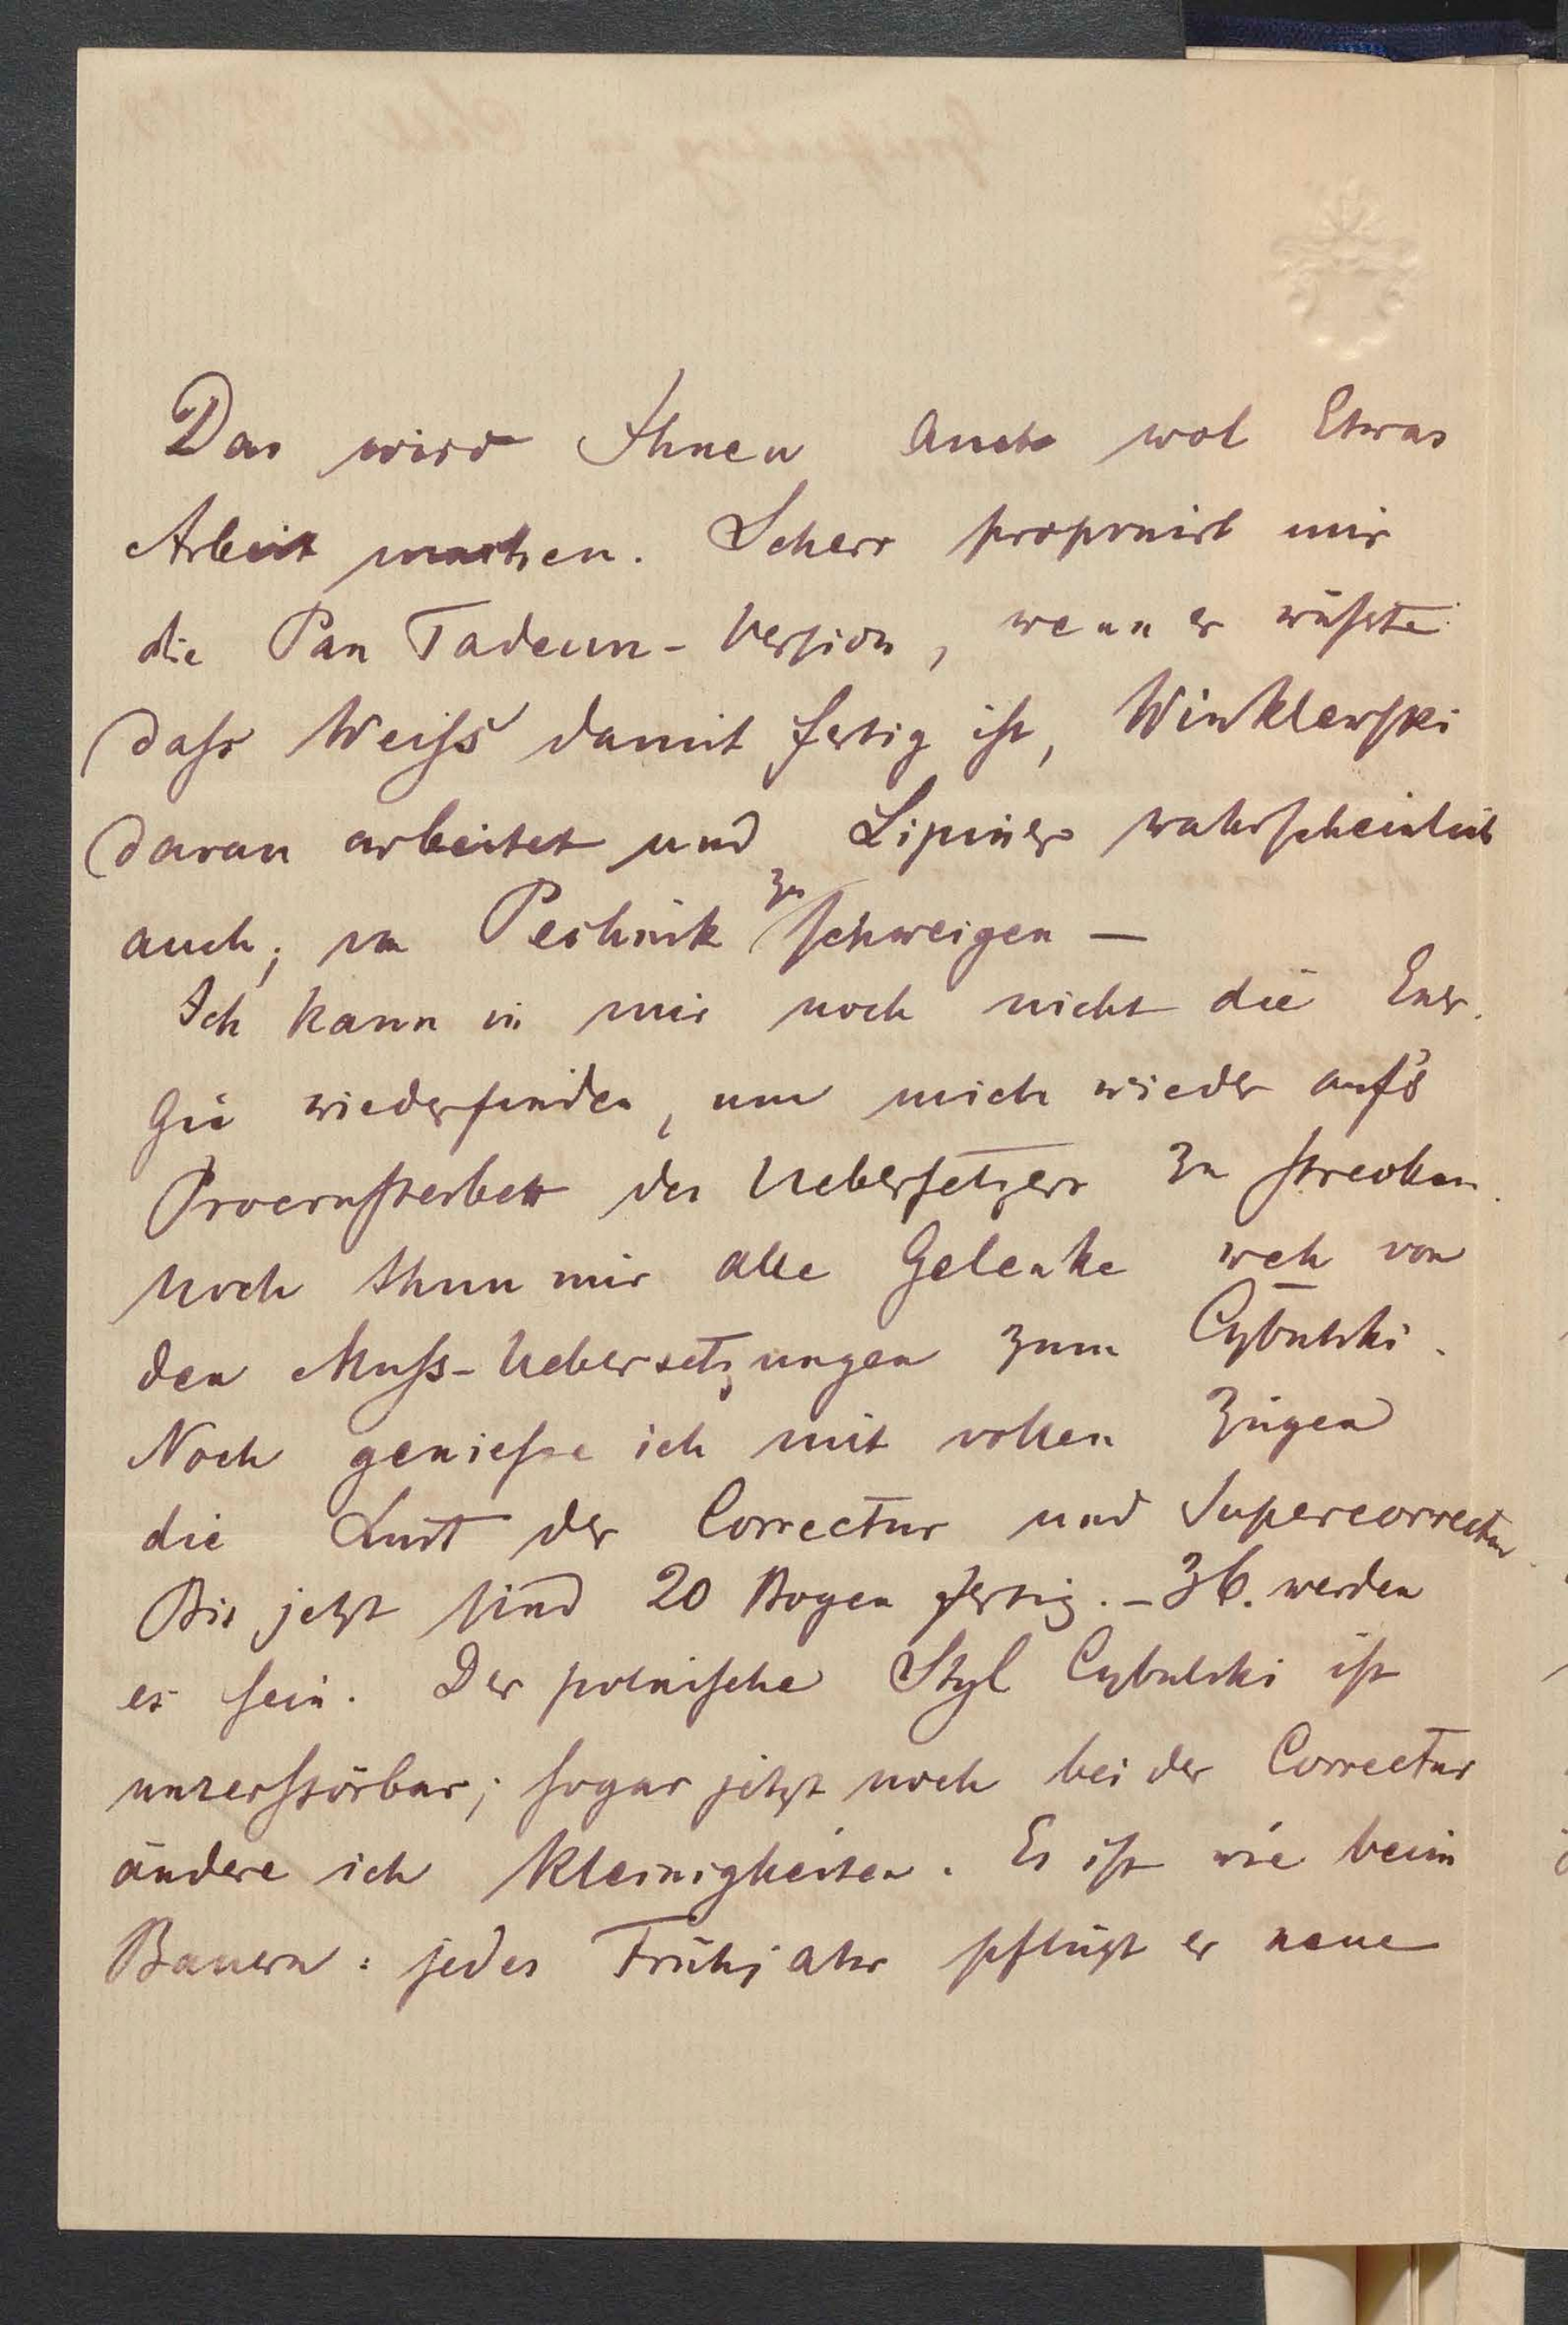 Das wird Ihnen auch wol Etwas
Arbeit machen. Scherr proponirt mir
die Pan Tadeusz-Version, wenn er wüsste
dass Weiss damit fertig ist, Winklewski
daran arbeitet und Lipiner wahrscheinlich
auch; von Peschnik zu schweigen —
Ich kann in mir noch nicht die Ener-
gie wiederfinden, um mich wieder auf's
Procrusterbett des Uebersetzers zu strecken.
Noch thun mir alle Gelenke weh von
den Muss-Uebersetzungen zum Cybulski.
Noch geniesse ich mit vollen Zügen
die Lust der Correctur und Supercorrectur
Bis jetzt sind 20 Bogen fertig. – 36. werden
es sein. Der polnische Styl Cybulski ist
unzerstörbar; sogar jetzt noch bei der Correctur
ändere ich Kleinigkeiten. Es ist wie beim
Bauern: jedes Frühjahr pflügt er neue